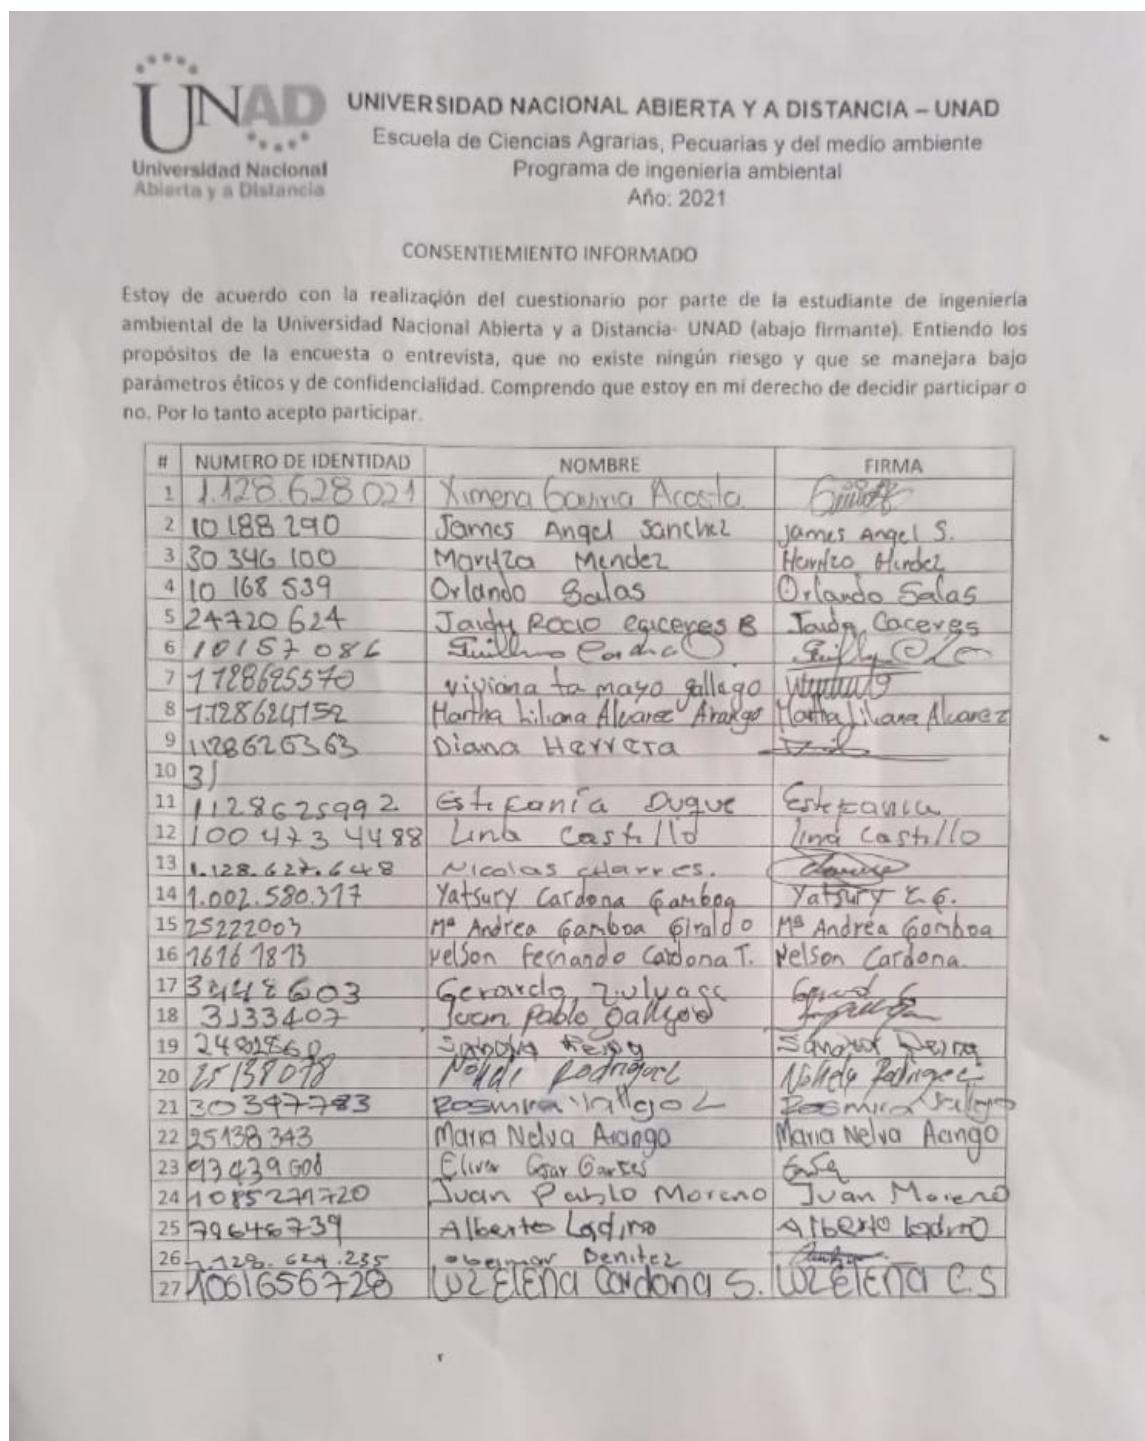 UNAD
Universidad Nacional
Abierta y a Distancia
UNIVERSIDAD NACIONAL ABIERTA Y A DISTANCIA – UNAD
Escuela de Ciencias Agrarias, Pecuarias y del medio ambiente
Programa de ingeniería ambiental
Año: 2021
CONSENTIEMIENTO INFORMADO
Estoy de acuerdo con la realización del cuestionario por parte de la estudiante de ingeniería
ambiental de la Universidad Nacional Abierta y a Distancia- UNAD (abajo firmante). Entiendo los
propósitos de la encuesta o entrevista, que no existe ningún riesgo y que se manejara bajo
parámetros éticos y de confidencialidad. Comprendo que estoy en mi derecho de decidir participar o
no. Por lo tanto acepto participar.
# NUMERO DE IDENTIDAD NOMBRE FIRMA
1 1.128.628.021 Ximena Gaviria Acosta
2 10 188 290 James Angel Sanchez James Angel S.
3 30 346 100 Maritza Mendez
4 10 168 539 Orlando Salas Orlando Salas
5 24720 624 Jaidy Rocio caceres B Jaidy Caceres
6 10157086
7 1128625570 viviana tamayo gallego
8 1.128624152 Martha Liliana Alvarez Arango Martha Liliana Alvarez
9 1128626363 Diana Herrera
10 3)
11 1128625992 Estefanía Duque Estefania
12 100 473 4488 Lina Castillo lina Castillo
13 1.128.627.648 Nicolas charres.
14 1.002.580.317 Yatsury Cardona Gamboa Yatsury C.G.
15 25222003 Mª Andrea Gamboa Giraldo Mª Andrea Gamboa
16 16161813 Nelson Fernando Cardona T. Nelson Cardona.
17 3448603 Gerardo Zuluaga
18 3133407 Juan Pablo Gallego
19 Sandra Reina
20 25138078 Rodriguez
21 30397783 Rosmira Vallejo L Rosmira Vallejo
22 25138343 Maria Nelva Arango Maria Nelva Arango
23 93439
24 1085271720 Juan Pablo Moreno Juan Moreno
25 79648739 Alberto Ladino Alberto ladino
26 1.128.624.235 obeimar Benitez
27 1061656728 LUZ ELENA Cardona S. LUZ ELENA C.S